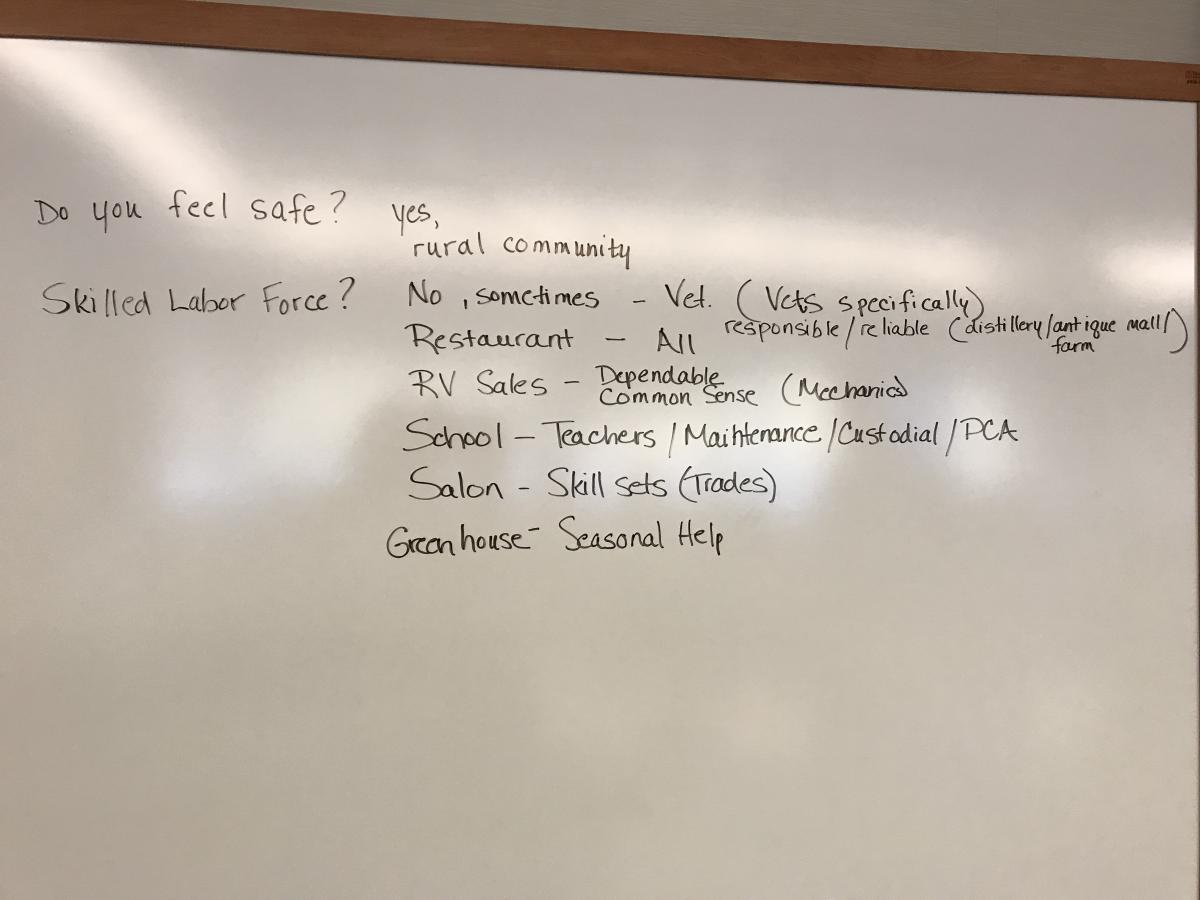 Do you feel safe? yes,
rural community
Skilled Labor Force? No, sometimes - Vet. (Vets specifically)
Restaurant - All responsible/reliable (distillery/antique mall/
farm)
RV Sales - Dependable
Common Sense (Mechanics)
School - Teachers/Maintenance/Custodial/PCA
Salon - Skill sets (Trades)
Greenhouse - Seasonal Help